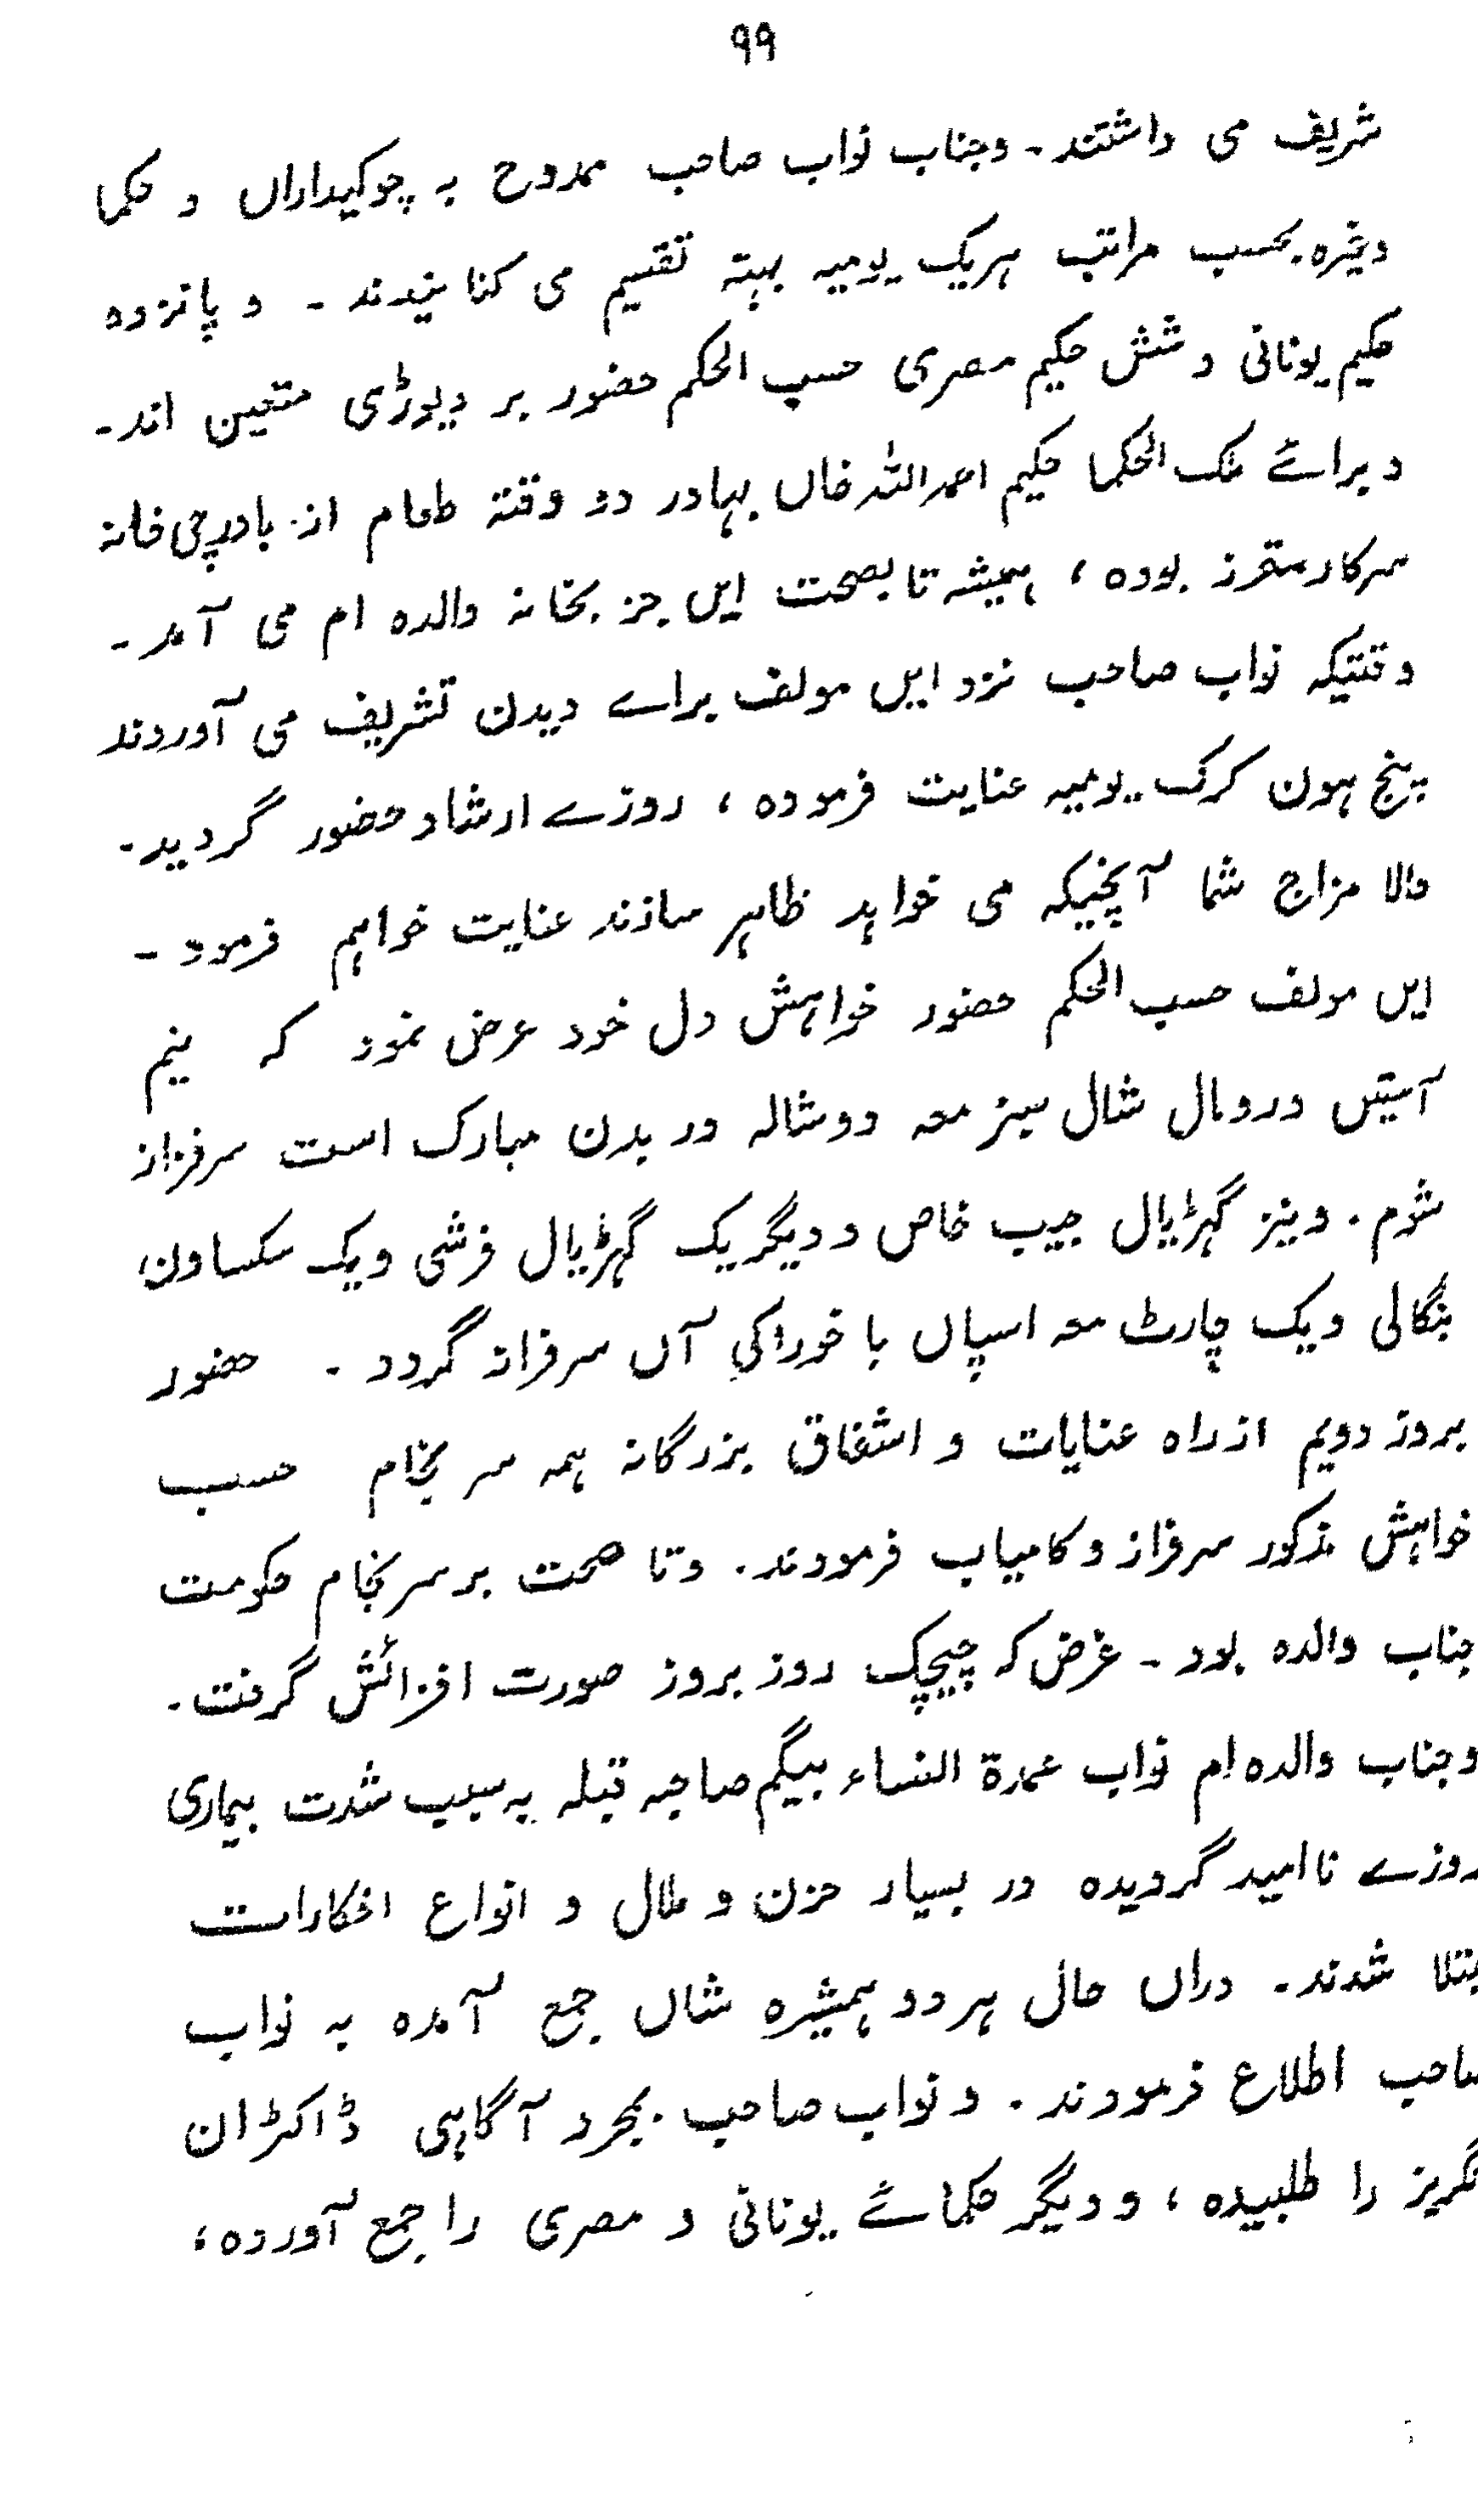 ۹۹
شریف می داشتند۔ وجناب نواب صاحب ممدوح بہ چوکیداراں و حکما
وغیرہ بحسب مراتب ہریک یومیہ بہتہ تقسیم می کنانیدند۔ و پانزدہ
حکیم یونانی و شش حکیم مصری حسب الحکم حضور بر دیوڑی متعین اند۔
وبرائے ملک الحکما حکیم احمد اللہ خاں بہادر دو وقتہ طعام از باورچی خانہ
سرکار مقرر بودہ، ہمیشہ تا بصحت ایں جز بخانہ والدہ ام می آمد۔
وقتیکہ نواب صاحب نزد ایں مولف براے دیدن تشریف می آوردند
پنج ہون کرک یومیہ عنایت فرمودہ، روزے ارشاد حضور گردید۔
والا مزاج شما آنچیکہ می خواہد ظاہر سازند عنایت خواہم فرمود۔
ایں مولف حسب الحکم حضور خواہش دل خود عرض نمود کہ نیم
آستیں ورومال شال سبز معہ دوشالہ در بدن مبارک است سرفراز
شوم۔ ونیز گہڑیال جیب خاص ودیگریک گہڑیال فرشی ویک سکساون
بنگالی ویک چارٹ معہ اسپاں با خوراکی آں سرفراز گردد۔ حضور
بروز دویم ازراہ عنایات و اشفاق بزرگانہ ہمہ سر نجام حسب
خواہش مذکور سرفراز وکامیاب فرمودند۔ وتا صحت برسر نجام حکومت
جناب والدہ بود۔ غرض کہ چیچک روز بروز صورت افزائش گرفت۔
وجناب والدہ ام نواب عمدۃ النساء بیگم صاحبہ قبلہ بہ سبب شدت بیماری
روزے ناامید گردیدہ در بسیار حزن و ملال و انواع افکارات
بتلا شدند۔ دراں حال ہردو ہمشیرہ شاں جمع آمدہ بہ نواب
صاحب اطلاع فرمودند۔ ونواب صاحب بمجرد آگاہی ڈاکٹران
نگریز را طلبیدہ، ودیگر حکمائے یونانی و مصری را جمع آوردہ،